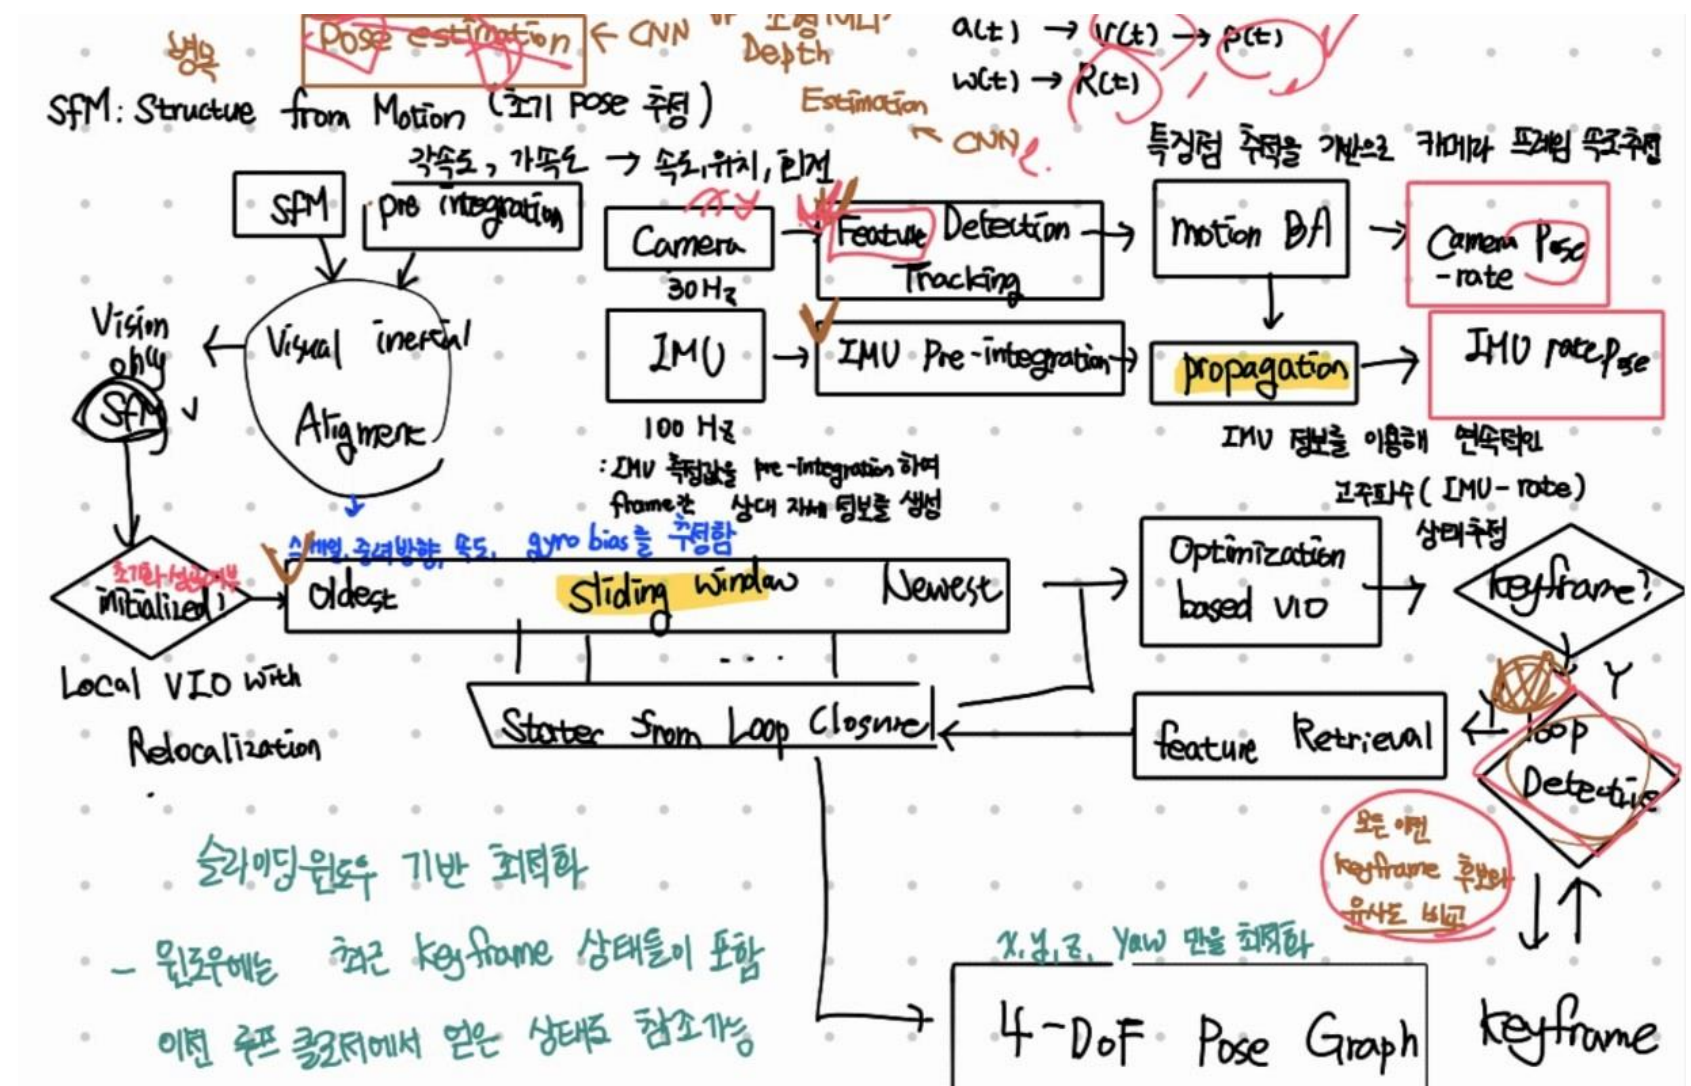 병목
Pose estimation ← CNN
Depth
Estimation
← CNN
a(t) → v(t) → p(t)
w(t) → R(t)
SfM: Structure from Motion (초기 pose 추정)
각속도, 가속도 → 속도, 위치, 회전
특징점 추적을 기반으로 카메라 프레임 속도추정
SfM
pre integration
Camera
30Hz
Feature Detection
Tracking
motion BA
Camera Pose
-rate
Vision
only
SfM
Visual inertial
Aligment
IMU
100 Hz
IMU Pre-integration
propagation
IMU rate Pose
: IMU 측정값을 pre-integration 하여
frame간 상대 자세 정보를 생성
IMU 정보를 이용해 연속적인
고주파수 (IMU-rate)
상태추정
스케일, 중력방향, 속도, gyro bias를 추정함
초기화 성공여부
initialized?
Oldest sliding window Newest
Optimization
based VIO
keyframe?
Y
Local VIO with
Relocalization
...
States from Loop Closure
feature Retrieval
loop
Detection
모든 이전
keyframe 후보와
유사도 비교
슬라이딩 윈도우 기반 최적화
- 윈도우에는 최근 keyframe 상태들이 포함
이전 루프 클로저에서 얻은 상태도 참조가능
x, y, z, yaw 만을 최적화
4-DoF Pose Graph
keyframe